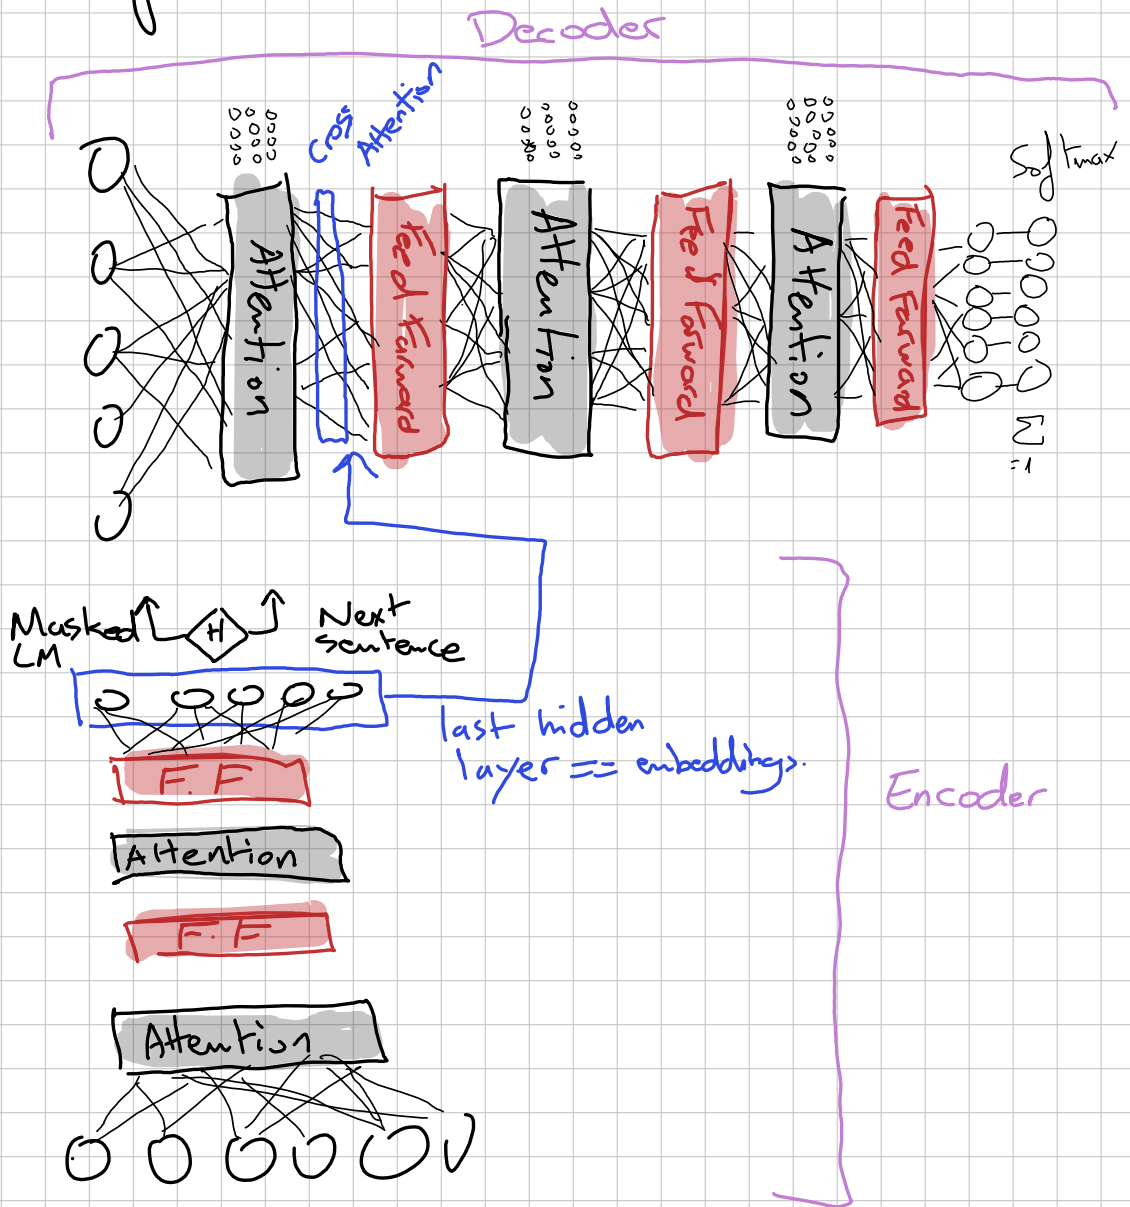 Decoder
Cross
Attention
Softmax
Attention
Feed Forward
Attention
Feed Forward
Attention
Feed Farward
Σ
=1
Masked
LM
H
Next
sentence
last hidden
layer == embeddings.
F.F
Encoder
Attention
F.F
Attention